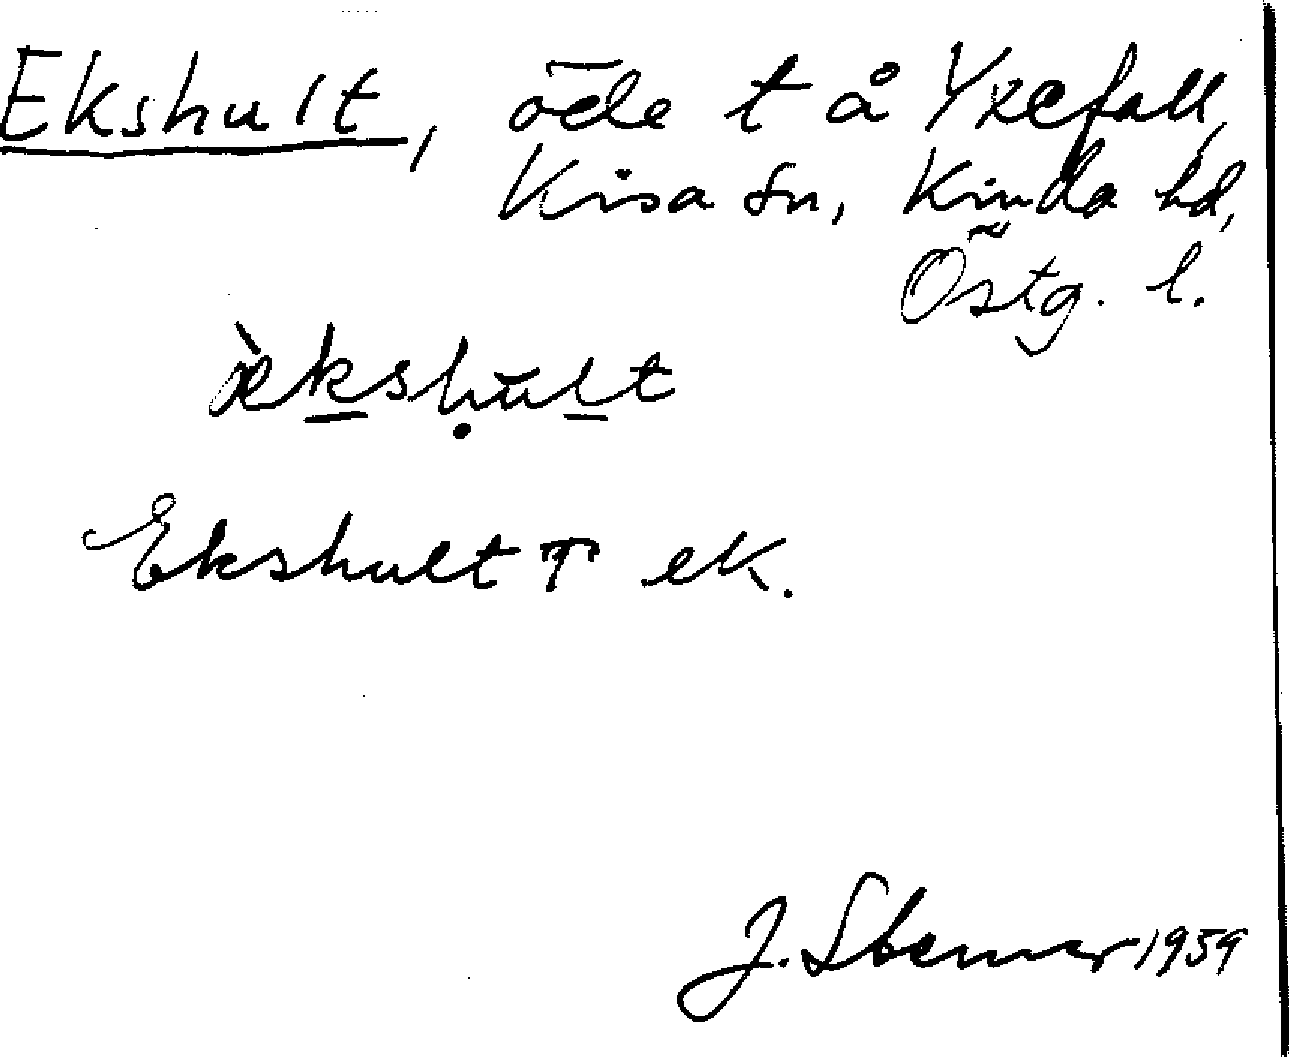 Ekshult, öde t å Yxefall,
Kisa sn, Kinda hd,
Östg. l.
ækshult
Ekshult T ek.
J. Sterner 1959